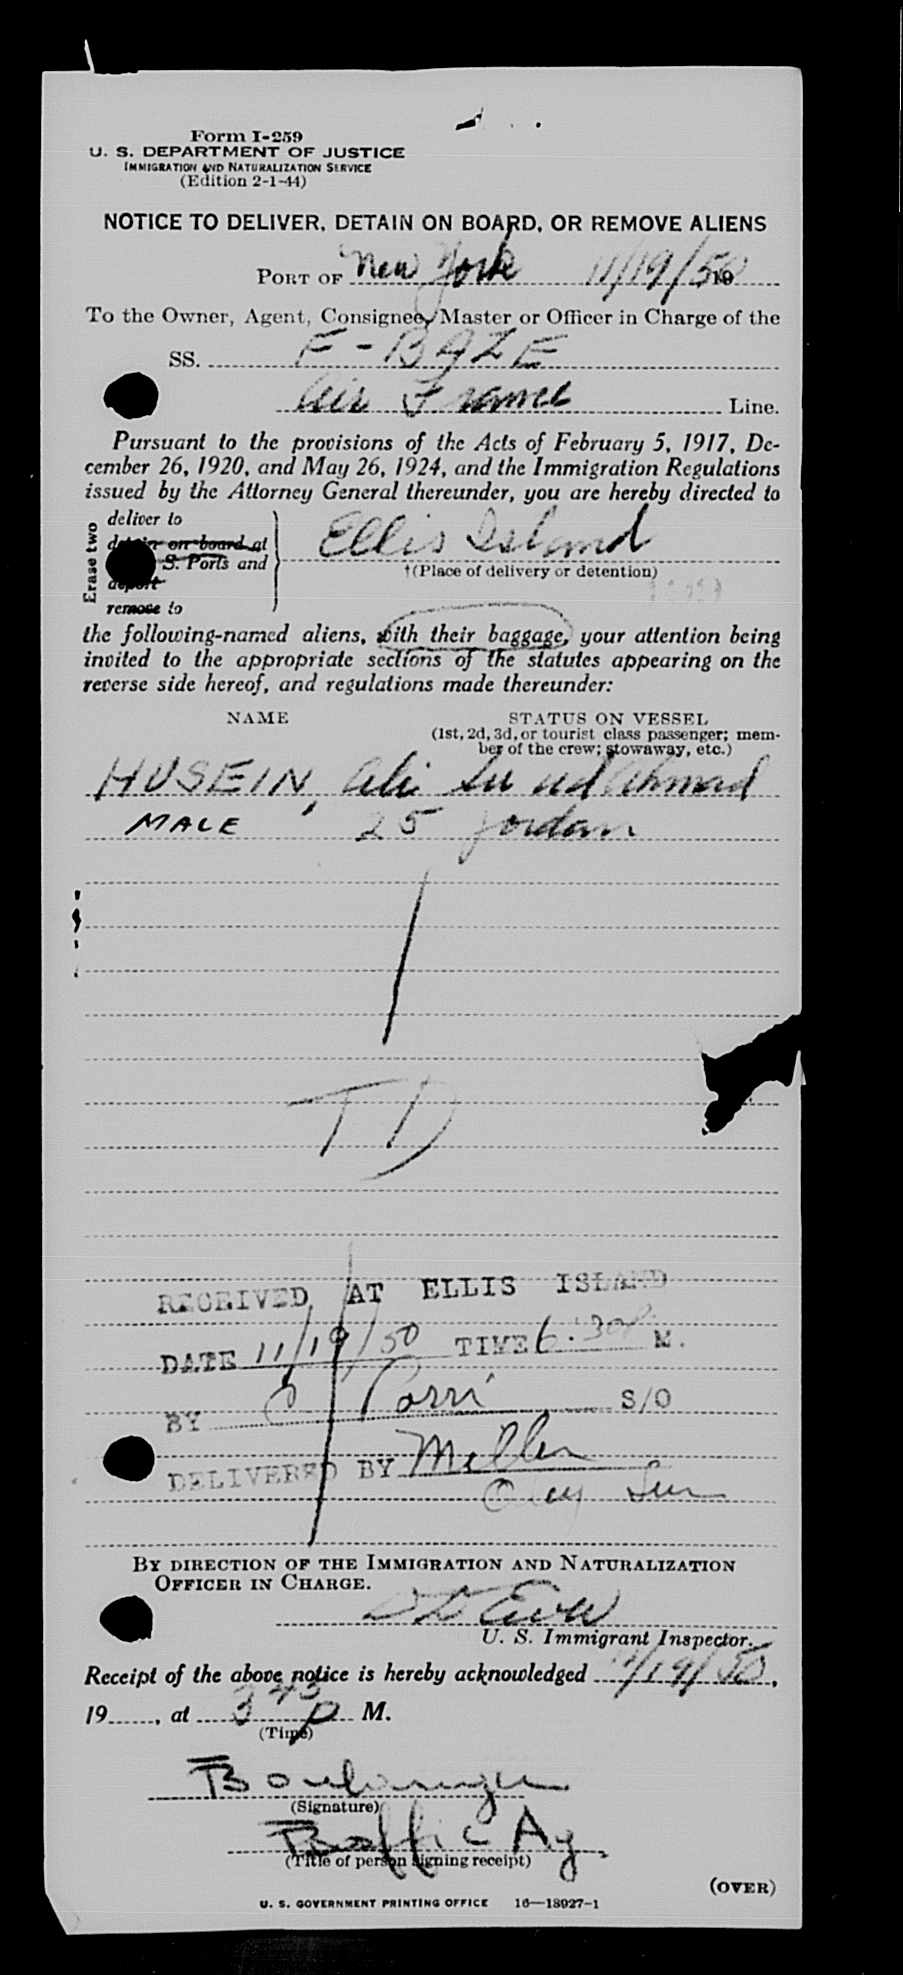 Form I-259
U. S. DEPARTMENT OF JUSTICE
IMMIGRATION AND NATURALIZATION SERVICE
(Edition 2-1-44)
NOTICE TO DELIVER, DETAIN ON BOARD, OR REMOVE ALIENS
PORT OF New York 11/19/50 19
To the Owner, Agent, Consignee, Master or Officer in Charge of the
SS. F-BAZE
Air France Line.
Pursuant to the provisions of the Acts of February 5, 1917, De-
cember 26, 1920, and May 26, 1924, and the Immigration Regulations
issued by the Attorney General thereunder, you are hereby directed to
Erase two
deliver to
detain on board at
S. Ports and
deport
remove to
Ellis Island
†(Place of delivery or detention)
the following-named aliens, with their baggage, your attention being
invited to the appropriate sections of the statutes appearing on the
reverse side hereof, and regulations made thereunder:
NAME STATUS ON VESSEL
(1st, 2d, 3d, or tourist class passenger; mem-
ber of the crew; stowaway, etc.)
HUSEIN, Ali Ahmad
MALE 25 Jordan
TD
RECEIVED AT ELLIS ISLAND
DATE 11/19/50 TIME 6:30 P. M.
BY S/O
DELIVERED BY Miller
BY DIRECTION OF THE IMMIGRATION AND NATURALIZATION
OFFICER IN CHARGE.
U. S. Immigrant Inspector.
Receipt of the above notice is hereby acknowledged 11/19/50,
19......, at 3 45 P M.
(Time)
Boulanger
(Signature)
(Title of person signing receipt)
(OVER)
U. S. GOVERNMENT PRINTING OFFICE 16—18927-1